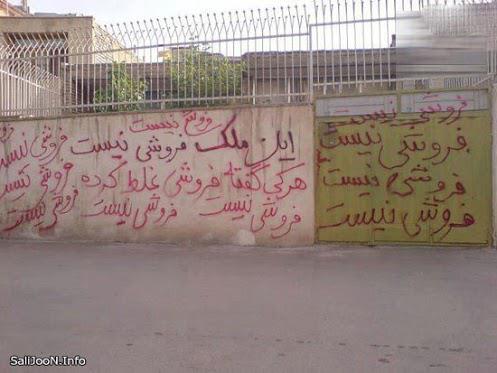 فروشی نیست
این ملک فروشی نیست فروشی نیست
هرکی گفته فروشی غلط کرده فروشی نیست
فروشی نیست فروشی نیست فروشی نیست
فروشی نیست
فروشی نیست
فروشی نیست
فروشی نیست
SaliJooN.Info